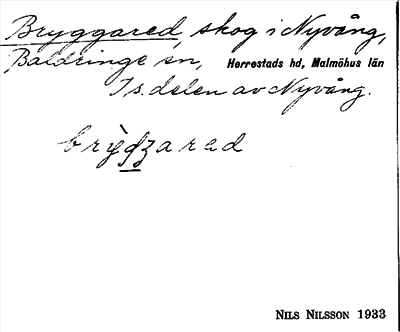 Bryggared, skog i Nyvång,
Baldringe sn, Herrestads hd, Malmöhus län
I s. delen av Nyvång.
NILS NILSSON 1933